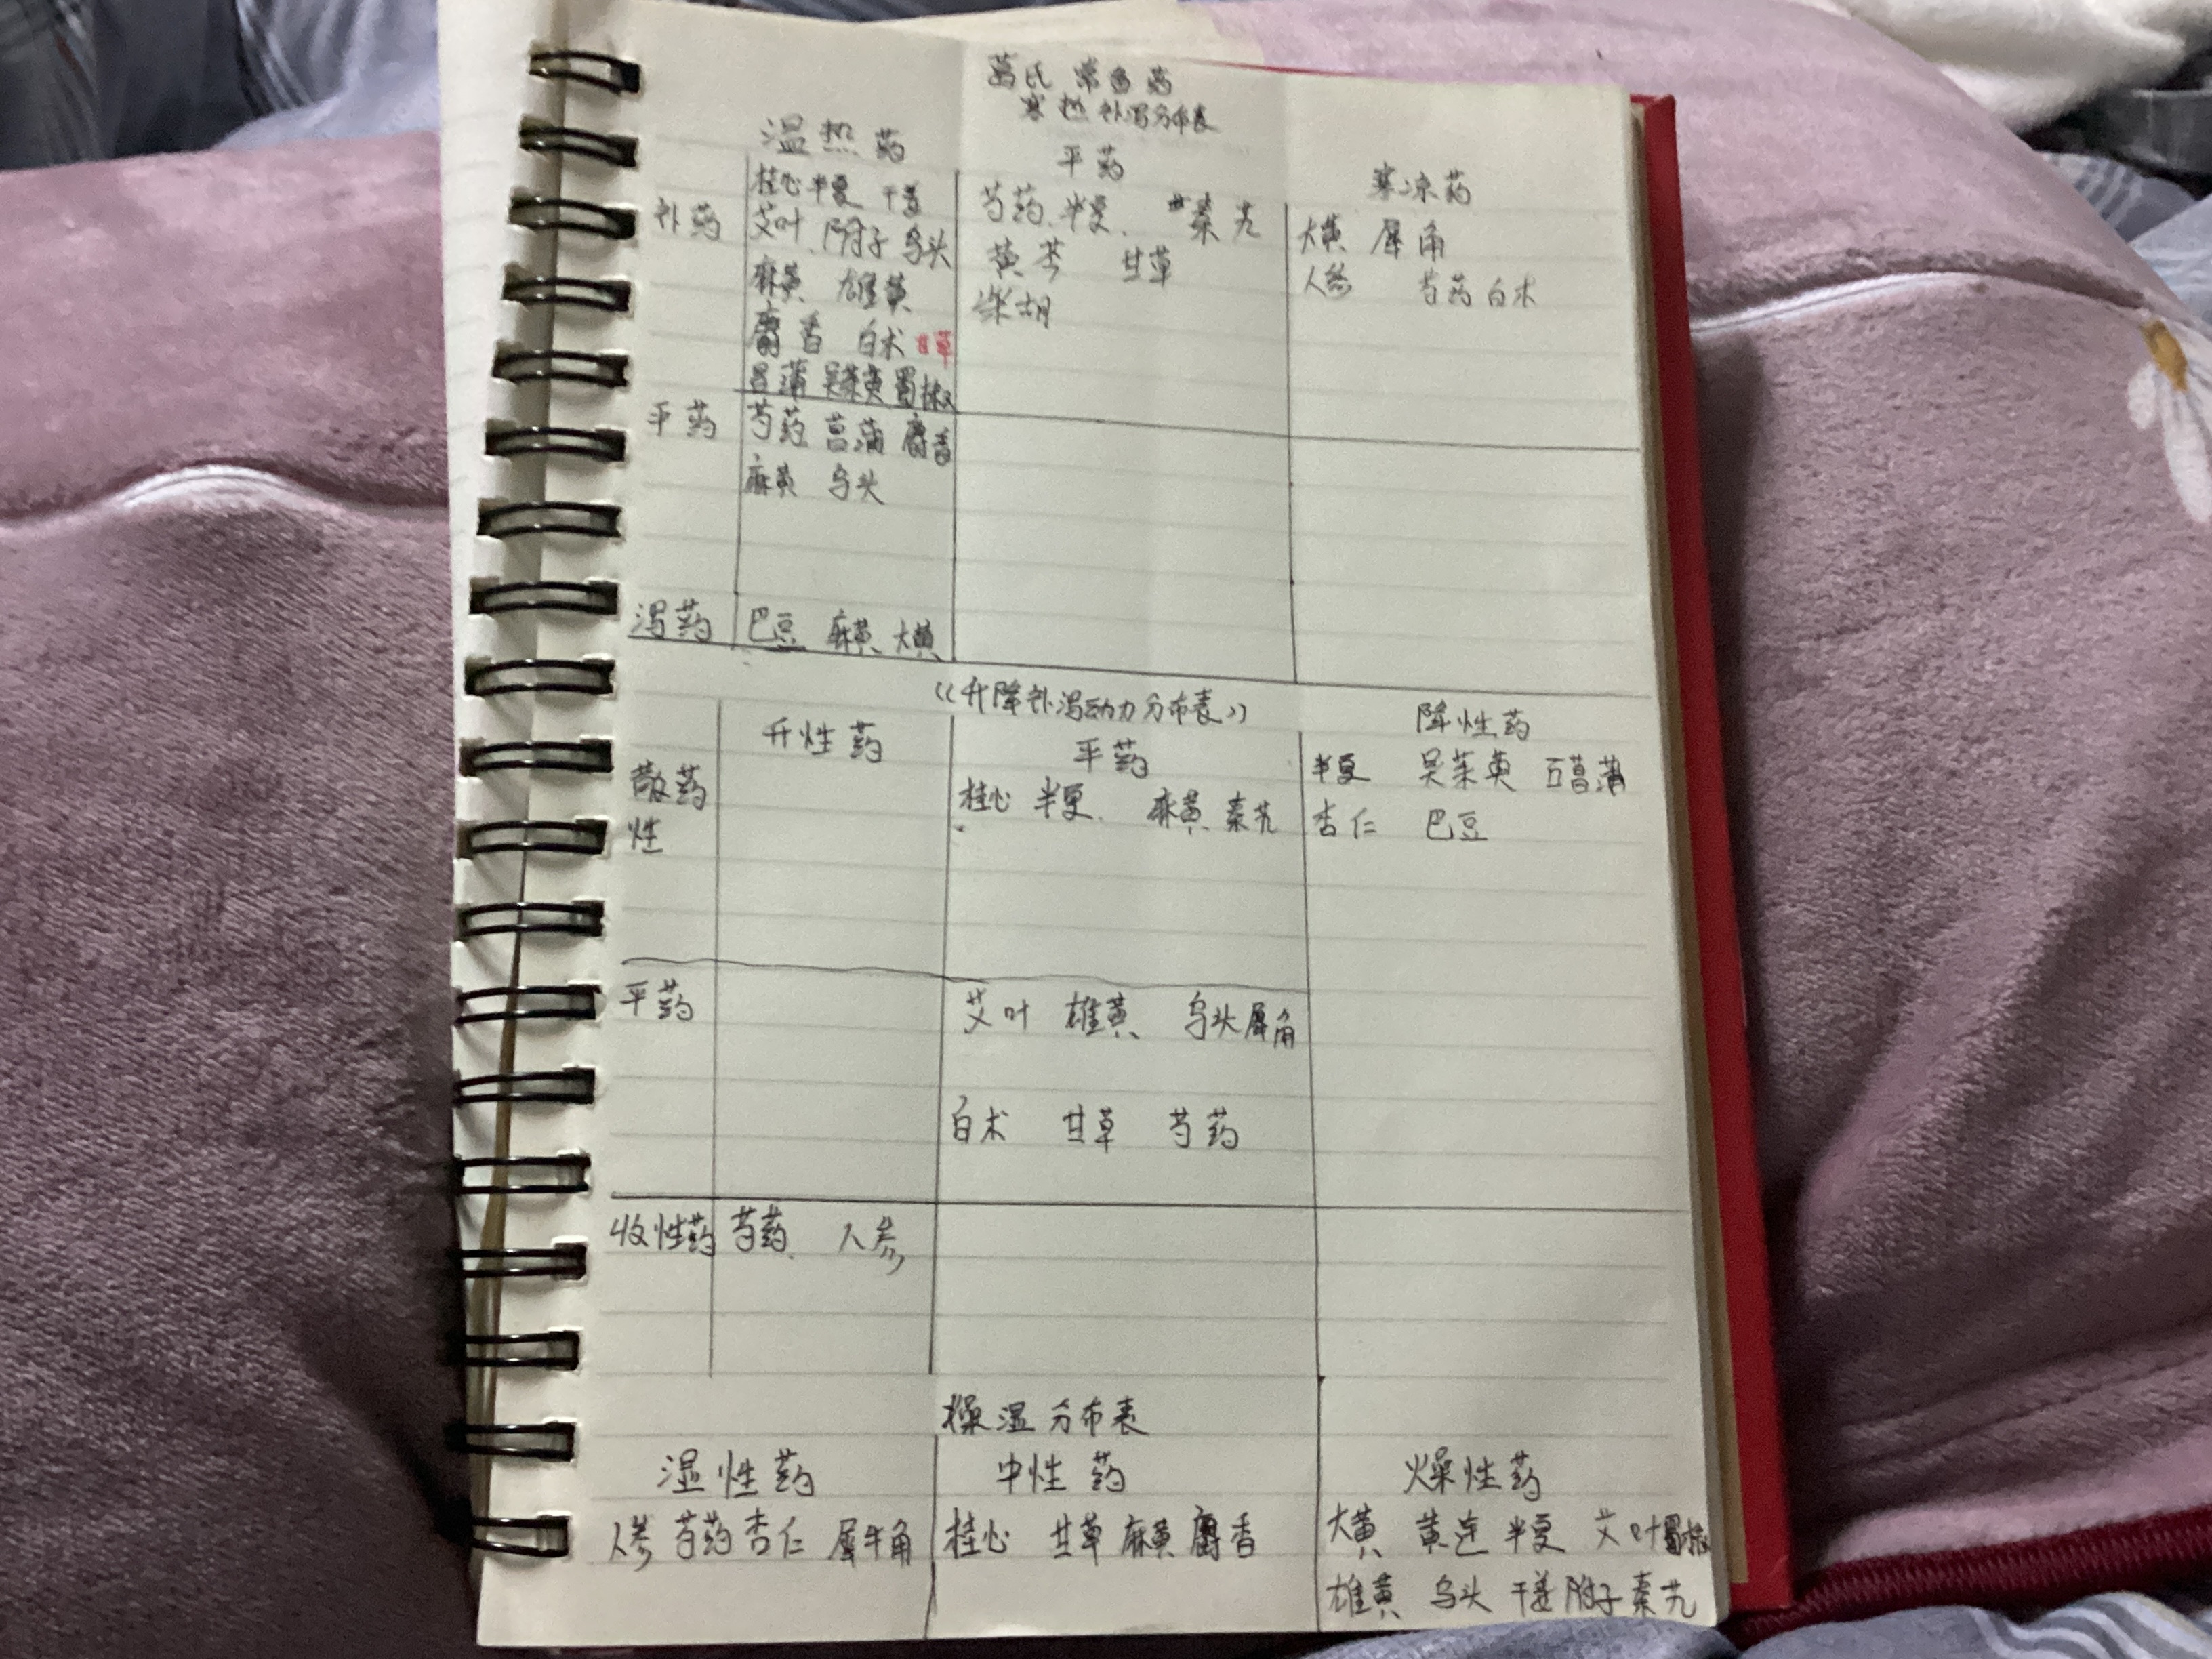 葛氏 常自药
寒热补泻分布表
温热药 平药 寒凉药
补药
桂心 半夏 干姜
艾叶、附子 乌头
麻黄 雄黄
麝香 白术 甘草
昌蒲 吴茱萸 蜀椒
芍药、半夏、 秦艽
黄芩 甘草
柴胡
大黄 犀角
人参 芍药 白术
平药
芍药 菖蒲 麝香
麻黄 乌头
泻药 巴豆 麻黄 大黄
《升降补泻动力分布表》
升性药 平药 降性药
散药
性
桂心 半夏、 麻黄 秦艽
半夏 吴茱萸 石菖蒲
杏仁 巴豆
平药
艾叶 雄黄 乌头 犀角
白术 甘草 芍药
收性药 芍药、 人参
燥湿分布表
湿性药 中性药 燥性药
人参 芍药 杏仁 犀牛角
桂心 甘草 麻黄 麝香
大黄 黄连 半夏 艾叶 蜀椒
雄黄 乌头 干姜 附子 秦艽